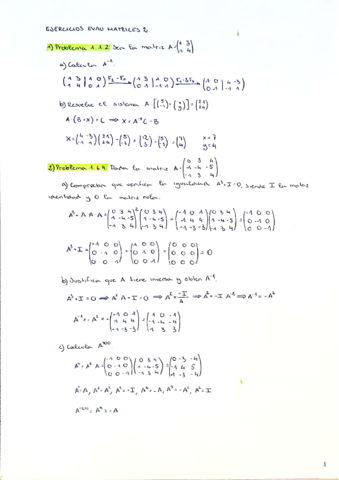 EJERCICIOS EVAU MATRICES 2
1) Problema 1.1.2 Sea la matriz A = (1 3 / 1 4)
a) Calcular A⁻¹.
(1 3 | 1 0 / 1 4 | 0 1) F₂-F₁ → (1 3 | 1 0 / 0 1 | -1 1) F₁-3F₂ → (1 0 | 4 -3 / 0 1 | -1 1)
b) Resolver el sistema A
A·(B+X) = C ⟹ X = A⁻¹·C - B
x = 7
y = 4
2) Problema 1.6.4 Dada la matriz A = (0 3 4 / 1 -4 -5 / -1 3 4)
a) Comprobar que verifica la igualdad A³+I=0, siendo I la matriz
identidad y 0 la matriz nula.
A³ = A·A·A = (0 3 4 / 1 -4 -5 / -1 3 4)² (0 3 4 / 1 -4 -5 / -1 3 4) = (-1 0 1 / 1 4 4 / -1 -3 -3) (0 3 4 / 1 -4 -5 / -1 3 4) = (-1 0 0 / 0 -1 0 / 0 0 -1)
A³+I = (-1 0 0 / 0 -1 0 / 0 0 -1) + (1 0 0 / 0 1 0 / 0 0 1) = (0 0 0 / 0 0 0 / 0 0 0) = 0
b) Justificar que A tiene inversa y obtén A⁻¹
A³+I=0 ⟹ A²·A+I=0 ⟹ A² = -I/A ⟹ A² = -I·A⁻¹ ⟹ A⁻¹ = -A²
A⁻¹ = -A² = -(-1 0 1 / 1 4 4 / -1 -3 -3) = (1 0 -1 / -1 -4 -4 / 1 3 3)
c) Calcular A¹⁰⁰
A⁴ = A³·A = (-1 0 0 / 0 -1 0 / 0 0 -1) (0 3 4 / 1 -4 -5 / -1 3 4) = (0 -3 -4 / -1 4 5 / 1 -3 -4)
A=A, A²=A², A³=-I, A⁴=-A, A⁵=-A², A⁶=I
A¹⁰⁰ = A⁴ = -A
1